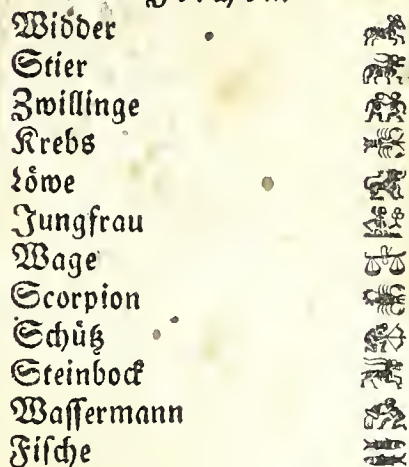 Widder
Stier
Zwillinge
Krebs
Löwe
Jungfrau
Wage
Scorpion
Schütz
Steinbock
Wassermann
Fische